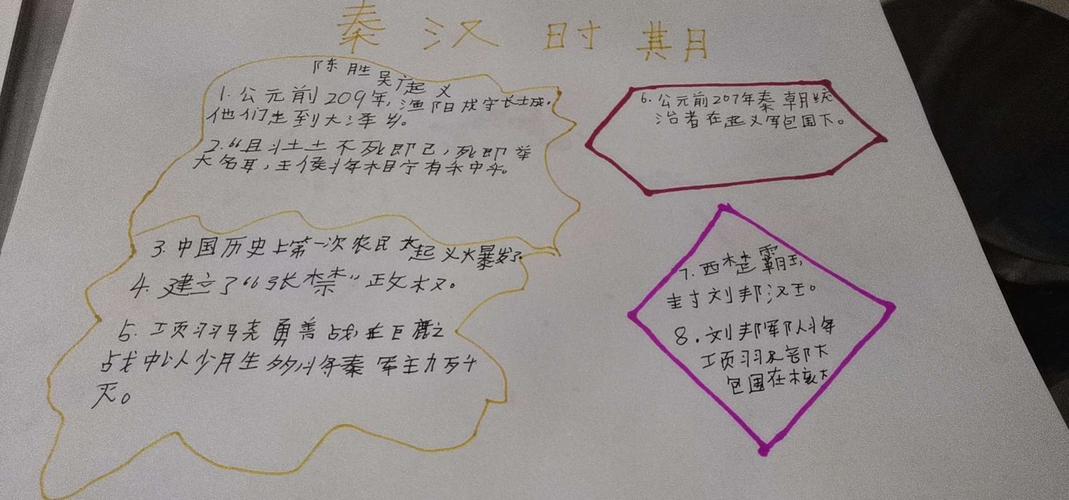 秦汉时期
陈胜吴广起义
1.公元前209年,渔阳戍守长城。
他们走到大泽乡。
2."且壮士不死即已,死即举
大名耳,王侯将相宁有种乎。
3.中国历史上第一次农民大起义大暴发。
4.建立了"张楚"政权。
5.项羽骁勇善战在巨鹿之
战中以少胜多将秦军主力歼
灭。
6.公元前207年秦朝统
治者在起义军包围下。
7.西楚霸王
封刘邦汉王。
8.刘邦军队将
项羽及部队
包围在垓下